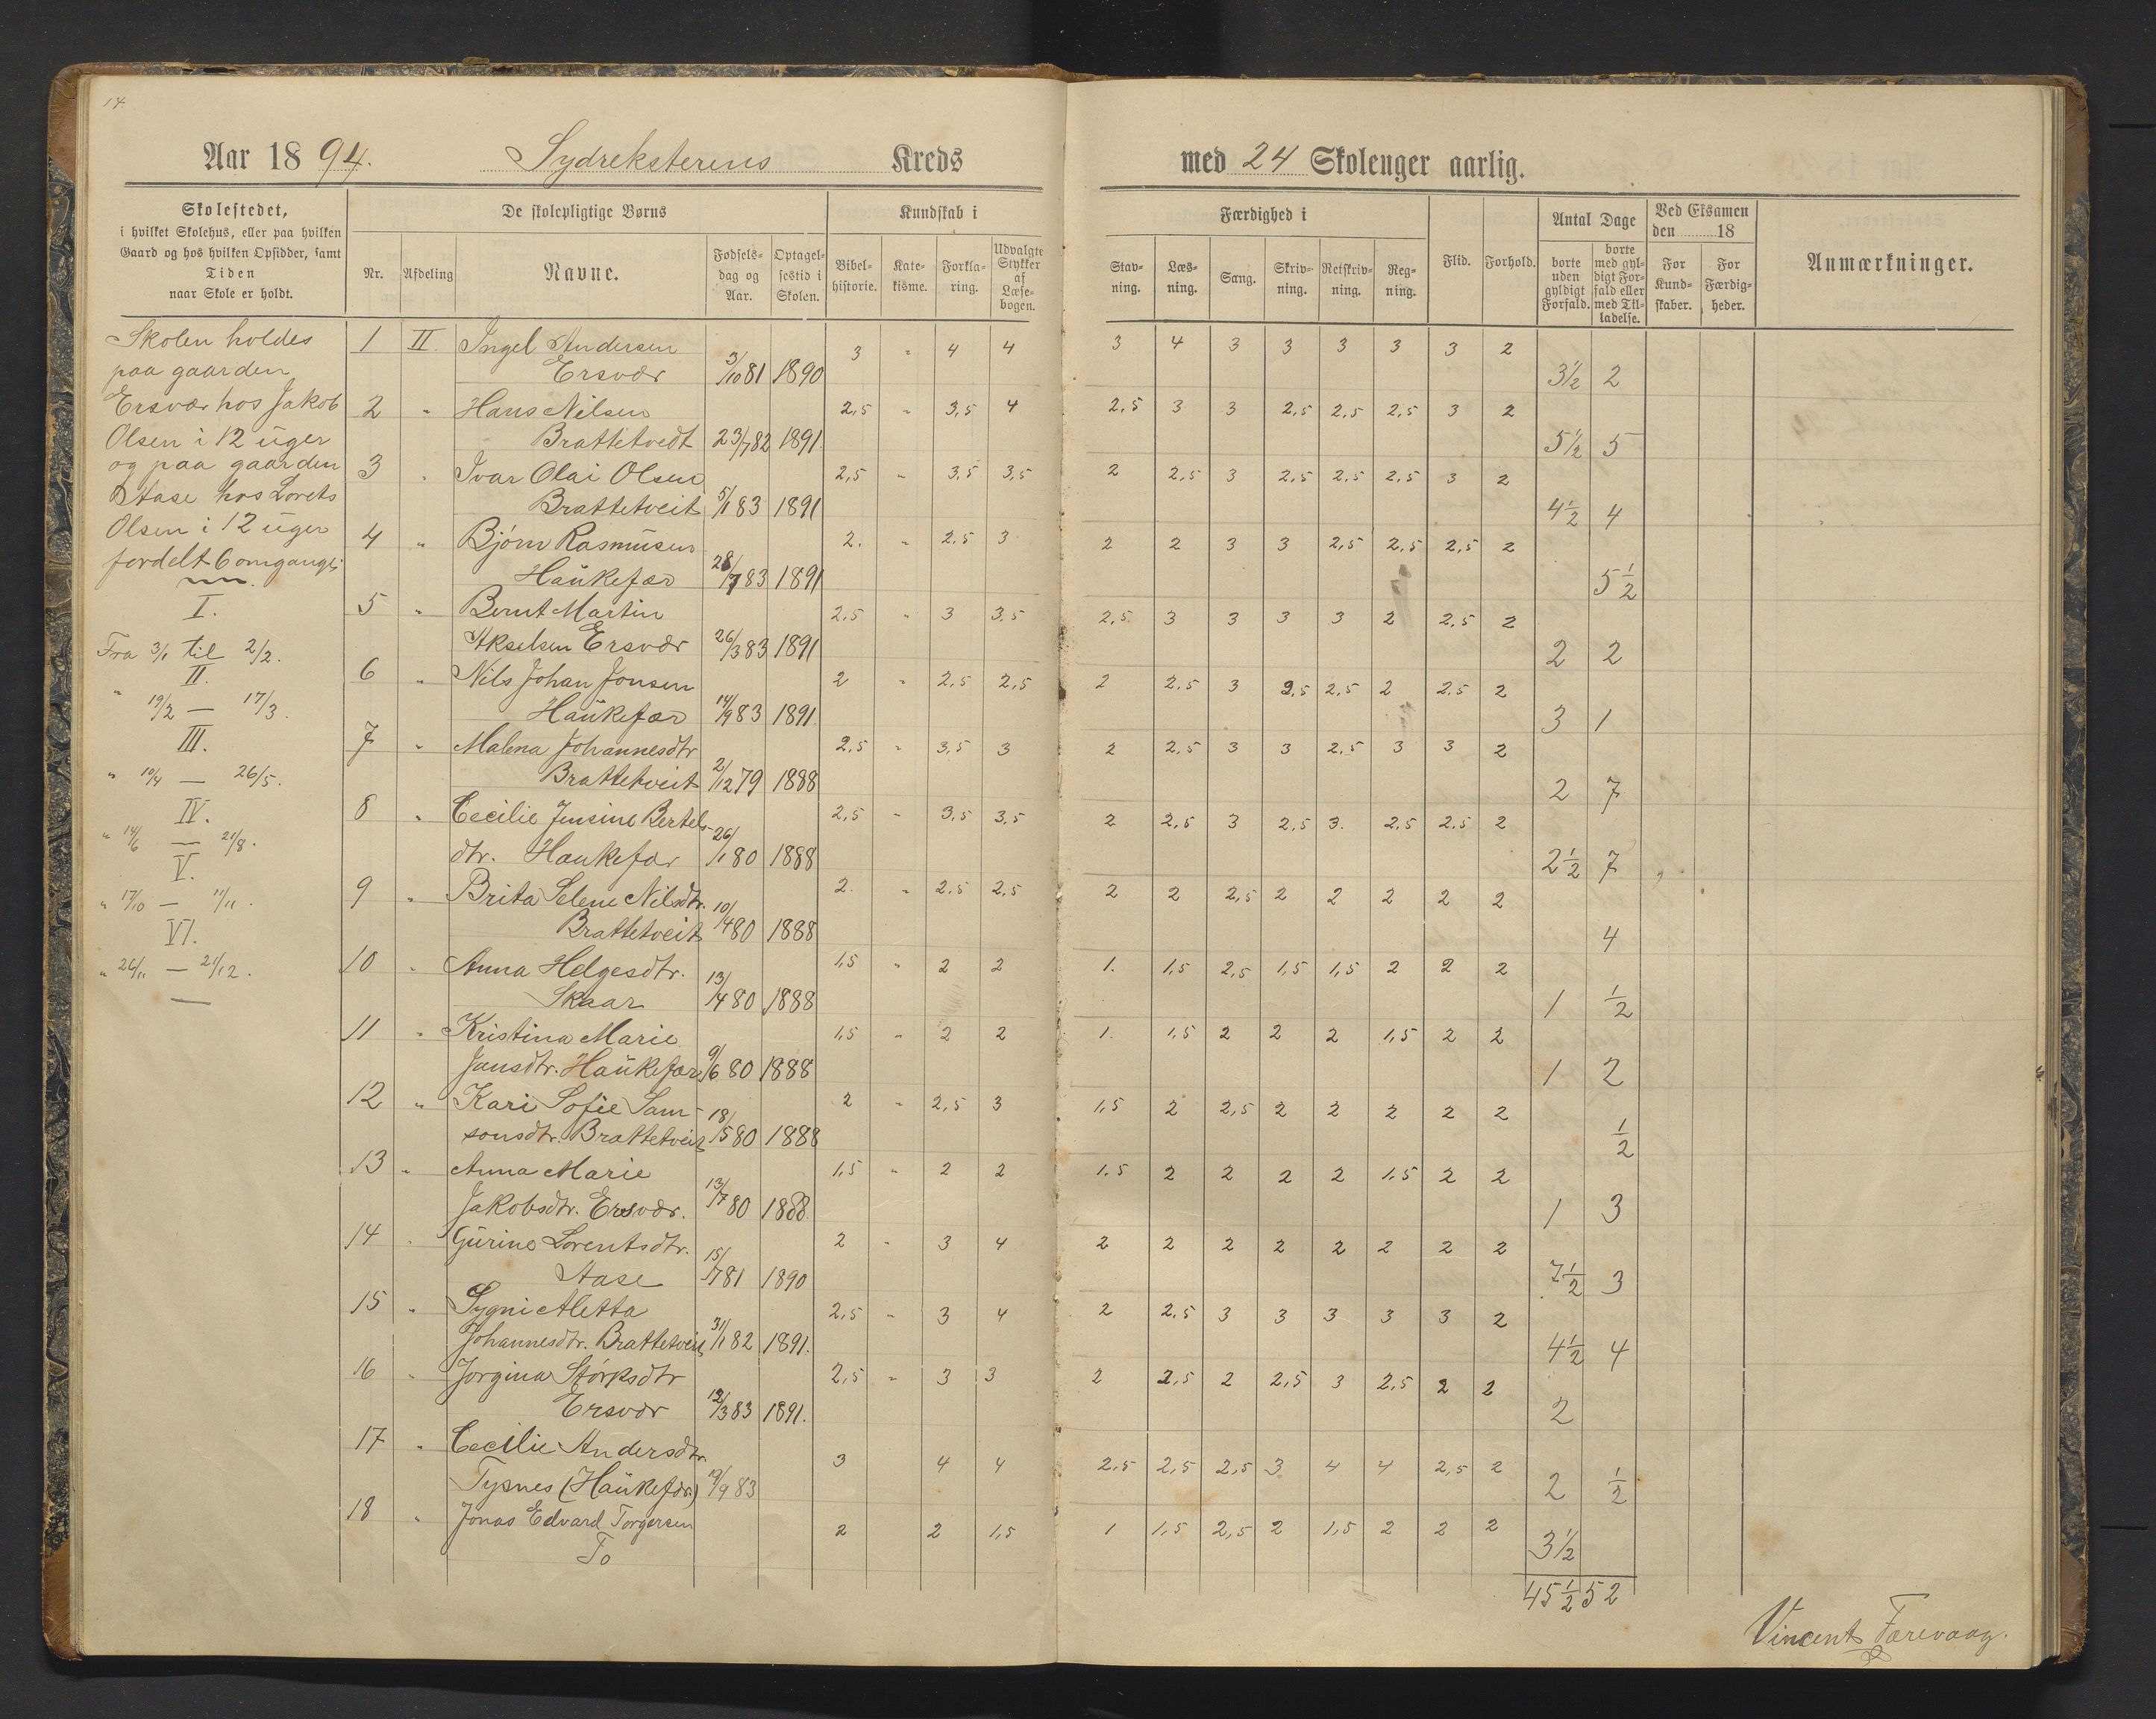 14.
Aar 1894. Sydreksterens Kreds med 24 Skoleuger aarlig.
Skolestedet,
i hvilket Skolehus, eller paa hvilken
Gaard og hos hvilken Opsidder, samt
Tiden
naar Skole er holdt.
De skolepligtige Børns
Nr. Afdeling Navne. Fødselsdag og Aar. Optagelsestid i Skolen.
Kundskab i
Bibelhistorie. Katekisme. Forklaring. Udvalgte Stykker af Læsebogen.
Færdighed i
Stavning. Læsning. Sang. Skrivning. Retskrivning. Regning.
Flid. Forhold.
Antal Dage
borte uden gyldigt Forfald. borte med gyldigt Forfald eller med Tilladelse.
Ved Eksamen
den 18
For Kundskaber. For Færdigheder.
Anmærkninger.
Skolen holdes
paa gaarden
Ersvær hos Jakob
Olsen i 12 uger
og paa gaarden
Aase hos Lorents
Olsen i 12 uger
fordelt 6 omgange
I.
Fra 3/1 til 2/2.
II.
" 19/2 — 17/3.
III.
" 10/4 — 26/5.
IV.
" 14/6 — 21/8.
V.
" 17/10 — 11/11.
VI.
" 26/11 — 21/12.
1 II. Ingel Andersen 3 " 4 4 3 4 3 3 3 3 3 2
Ersvær 3/10 81 1890 3½ 2
2 " Hans Nilsen 2,5 " 3,5 4 2,5 3 3 2,5 2,5 2,5 3 2
Brattetvedt 23/7 82 1891 5½ 5
3 " Ivar Olai Olsen 2,5 " 3,5 3,5 2 2,5 3 2,5 2,5 2,5 3 2
Brattetveit 5/1 83 1891 4½ 4
4 " Bjørn Rasmusen 2. " 2,5 3 2 2 3 3 2,5 2,5 2,5 2
Haukefær 28/7 83 1891 5½
5 " Bernt Martin 2,5 " 3 3,5 2,5 3 3 3 3 2 2,5 2
Akselsen Ersvær 26/3 83 1891 2 2
6 " Nils Johan Jonsen 2 " 2,5 2,5 2 2,5 3 2,5 2,5 2 2,5 2
Haukefær 14/9 83 1891. 3 1
7 " Malena Johannesdtr 2,5 " 3,5 3 2 2,5 3 3 2,5 3 3 2
Brattetveit 2/12 79 1888 2 7
8 " Cecilie Jensine Bertels- 2,5 " 3,5 3,5 2 2,5 3 2,5 3. 2,5 2,5 2
dtr. Haukefær 26/1 80 1888 2½ 7
9 " Brita Selene Nilsdtr. 2. " 2,5 2,5 2 2 2,5 2 2 2 2 2
Brattetveit 10/4 80 1888 4
10 " Anna Helgesdtr. 1,5 " 2 2 1. 1,5 2,5 1,5 1,5 2 2 2
Skaar 13/4 80 1888 1 ½
11 " Kristina Marie 1,5 " 2 2 1. 1,5 2 2 2 1,5 2 2
Jansdtr. Haukefær 9/6 80 1888 1 2
12 " Kari Sofie Sam- 2 " 2,5 3 1,5 2 2,5 2 2 2 2 2
sonsdtr. Brattetveit 18/5 80 1888 ½
13 " Anna Marie 1,5 " 2 2 1,5 2 2 2 2 1,5 2 2
Jakobsdtr. Ersvær. 13/7 80 1888. 1 3
14 " Gurine Lorentsdtr. 2 " 3 4 2 2 2 2 2 2 2 2
Aase 15/7 81 1890 7½ 3
15 " Sygni Aletta 2,5 " 3 4 2 2,5 3 3 3 3 3 2
Johannesdtr. Brattetveit 31/1 82 1891. 4½ 4
16 " Jorgina Størksdtr 2,5 " 3 3 2 2,5 2 2,5 3 2,5 2 2
Ersvær 12/3 83 1891. 2
17 " Cecilie Andersdtr. 3 4 4 2,5 2,5 2,5 3 4 4 2,5 2
Tysnes (Haukefær) 19/9 83 2 ½
18 " Jonas Edvard Torgersen 2 2 1,5 1 1,5 2,5 2 1,5 2 2 2
To 3½
45½ 52
Vincents Farevaag.